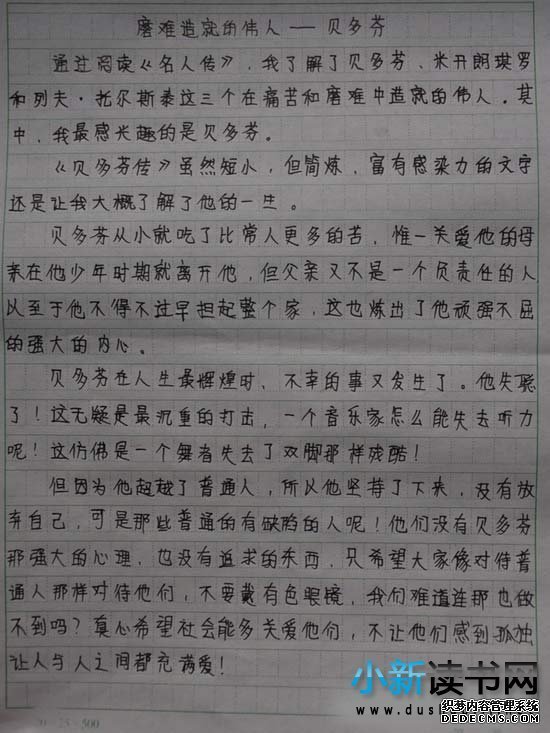 磨难造就的伟人——贝多芬
通过阅读《名人传》，我了解了贝多芬、米开朗琪罗
和列夫·托尔斯泰这三个在痛苦和磨难中造就的伟人。其
中，我最感兴趣的是贝多芬。
《贝多芬传》虽然短小，但简炼，富有感染力的文字
还是让我大概了解了他的一生。
贝多芬从小就吃了比常人更多的苦，惟一关爱他的母
亲在他少年时期就离开他，但父亲又不是一个负责任的人
以至于他不得不过早担起整个家，这也炼出了他顽强不屈
的强大的内心。
贝多芬在人生最辉煌时，不幸的事又发生了。他失聪
了！这无疑是最沉重的打击，一个音乐家怎么能失去听力
呢！这仿佛是一个舞者失去了双脚那样残酷！
但因为他超越了普通人，所以他坚持了下来，没有放
弃自己，可是那些普通的有缺陷的人呢！他们没有贝多芬
那强大的心理，也没有追求的东西，只希望大家像对待普
通人那样对待他们，不要戴有色眼镜，我们难道连那也做
不到吗？真心希望社会能多关爱他们，不让他们感到孤独
让人与人之间都充满爱！
小新读书网
www.dus
织梦内容管理系统
DEDECMS.COM
20×25=500